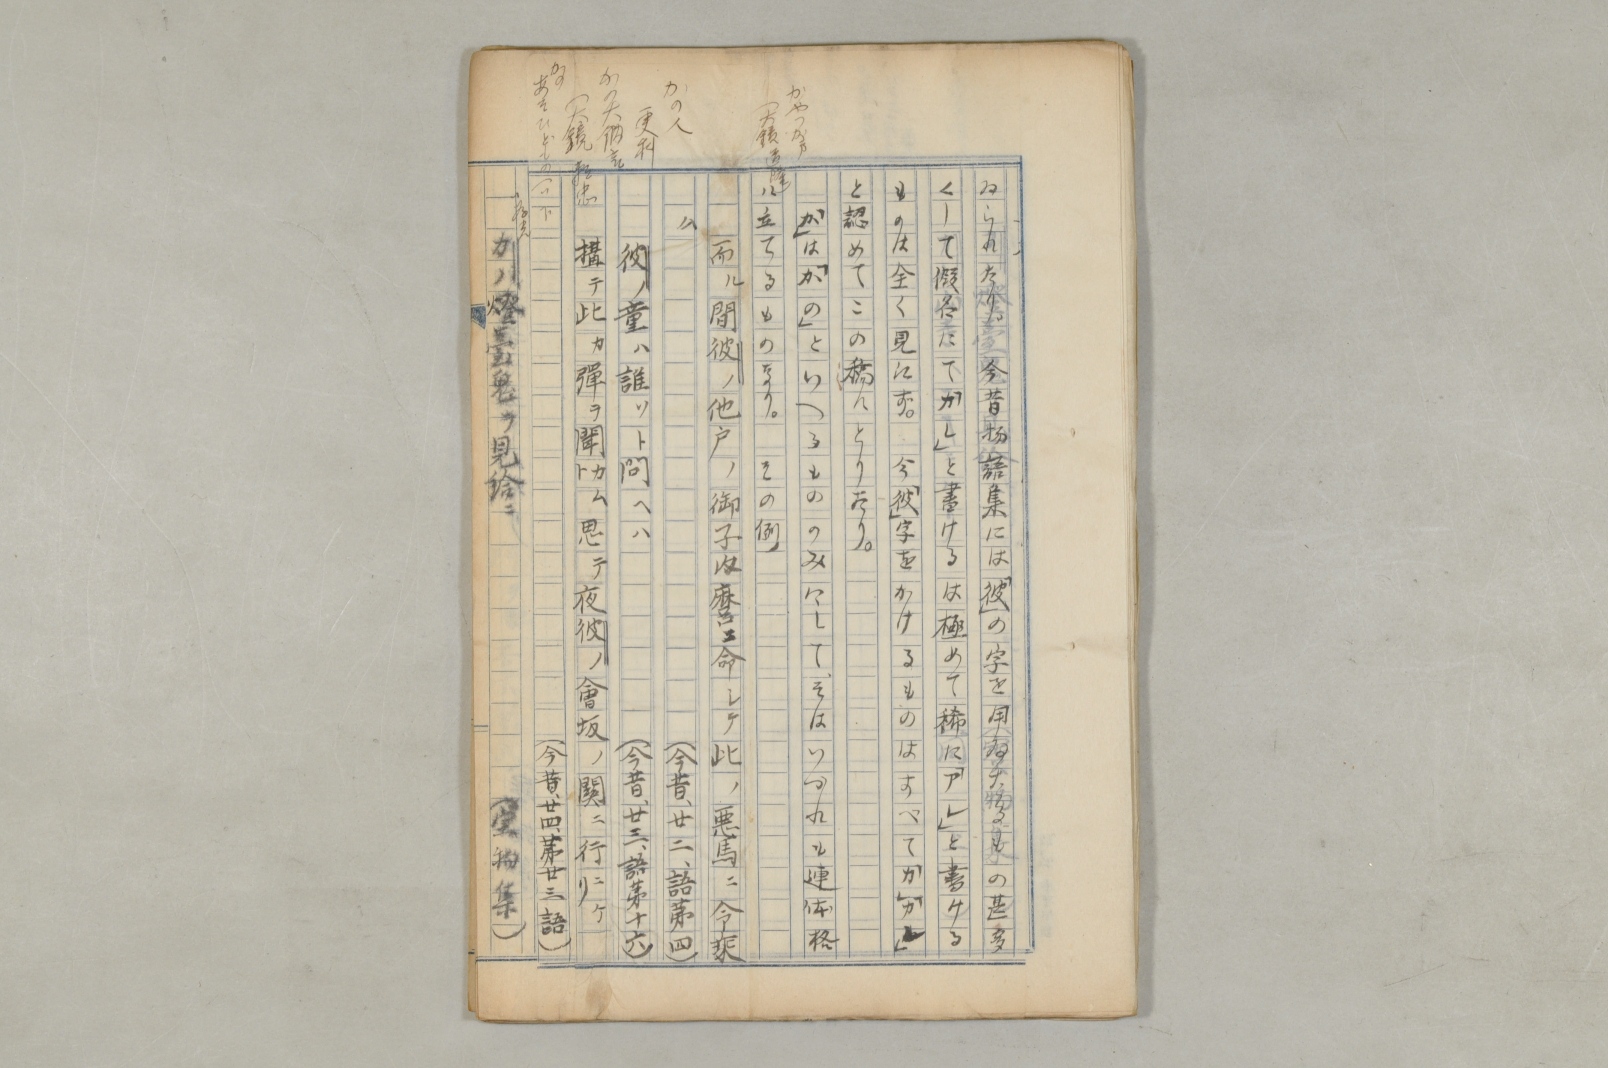 かやつがす
(大鏡道隆
かの人
更科
かの大納言
(大鏡
かの
あそひともの
ゐられたり。今昔物語集には「彼」の字を用ゐたるもの甚多
くして假名にて「カレ」と書けるは極めて稀に「アレ」と書ける
ものは全く見えず。今「彼」字をかけるものはすべて「カ」「カレ」
と認めてこの稿にとりたり。
「か」は「かの」といへるもののみにして、そはいづれも連体格
に立てるものなり。その例
而ル間彼ノ他戸ノ御子
命シテ此ノ悪馬ニ令乘
ム (今昔、廿二、語第四)
彼ノ童ハ誰ソト問ヘハ (今昔、廿三、語第十六)
構テ此カ彈ヲ聞カムト思テ夜彼ノ會坂ノ関ニ行ニケリ
(今昔、廿四、第廿三語)
カノ燈臺鬼ヲ見給ニ (宝物集)